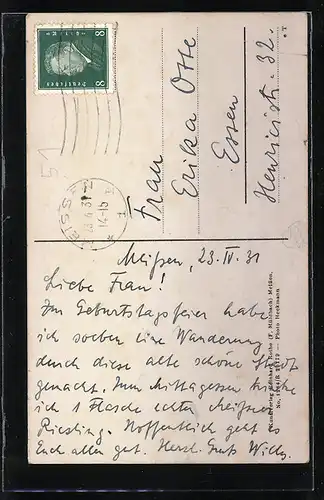 Meißen, 23. IV 31
Liebe Frau!
Zum Geburtstagfeier habe
ich soeben eine Wanderung
durch diese alte schöne Stadt
gemacht. Zum Mittagessen
ich 1 Flasche echten Meißner
Riesling. Hoffentlich geht es
Euch allen gut. Herzl. Gruß Willy.
Frau
Erika Otte
Essen
Henricistr. 32.
8 8
Deutsches Reich
MEISSEN
23.4.31 14-15
51
Photo Heckmann